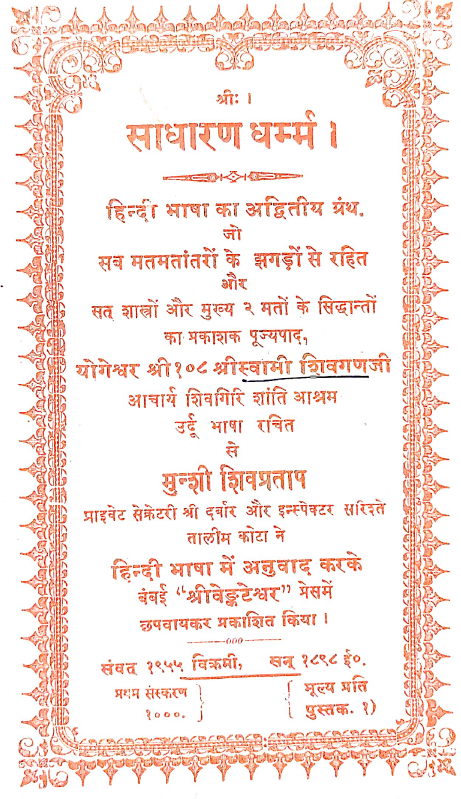 श्रीः ।
साधारण धर्म्म ।
हिन्दी भाषा का अद्वितीय ग्रंथ.
जो
सब मतमतांतरों के झगड़ों से रहित
और
सत् शास्त्रों और मुख्य २ मतों के सिद्धान्तों
का प्रकाशक पूज्यपाद,
योगेश्वर श्री१०८ श्रीस्वामी शिवगणजी
आचार्य शिवगिरि शांति आश्रम
उर्दू भाषा रचित
से
मुन्शी शिवप्रताप
प्राइवेट सेक्रेटरी श्री दर्बार और इन्स्पेक्टर सरिश्ते
तालीम कोटा ने
हिन्दी भाषा में अनुवाद करके
बंबई “श्रीवेङ्कटेश्वर” प्रेसमें
छपवायकर प्रकाशित किया ।
संवत् १९५५ विक्रमी, सन् १८९८ ई०.
प्रथम संस्करण } { मूल्य प्रति
१०००. } { पुस्तक. १)